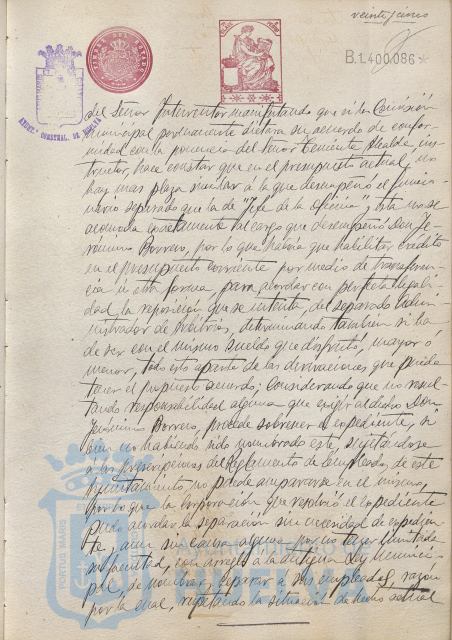 veinticinco
B.1.400,086
TIMBRE DEL ESTADO
del Señor Interventor manifestando que si la Comisión
Municipal Permanente dictara su acuerdo de confor-
midad con la ponencia del Señor Teniente Alcalde, ins-
tructor, hace constar que en el presupuesto actual, no
hay mas plaza similar á la que desempeñó el funcio-
nario separado que la de "Jefe de la Oficina" y esta no se
acomoda exactamente al cargo que desempeñó Don Je-
rónimo Borrero, por lo que habría que habilitar crédito
en el presupuesto corriente por medio de transferen-
cia ú otra forma para acordar con perfecta legali-
dad la reposición que se intenta, del separado Admi-
nistrador de Arbitrios, determinando tambien si ha
de ser con el mismo sueldo que disfrutó, mayor ó
menor, todo esto aparte de las derivaciones que pueda
tener el propuesto acuerdo; Considerando que no resul-
tando responsabilidad alguna que exigir al dicho Don
Jerónimo Borrero, procede sobreseer el expediente, si
bien no habiendo sido nombrado este, sujetándose
á las prescripciones del Reglamento de Empleados, de este
Ayuntamiento no puede ampararse en el mismo,
por lo que la Corporación que resolvió el expediente
pudo acordar la separación sin necesidad de expedien-
te, aun sin causa alguna, por no tener limitada
su facultad, con arreglo á la antigua Ley Munici-
pal, de nombrar y separar á sus empleados, razón
por la cual, respetando la situación de hecho actual
PORTUS MARIS
Ayuntamiento de
HUELVA